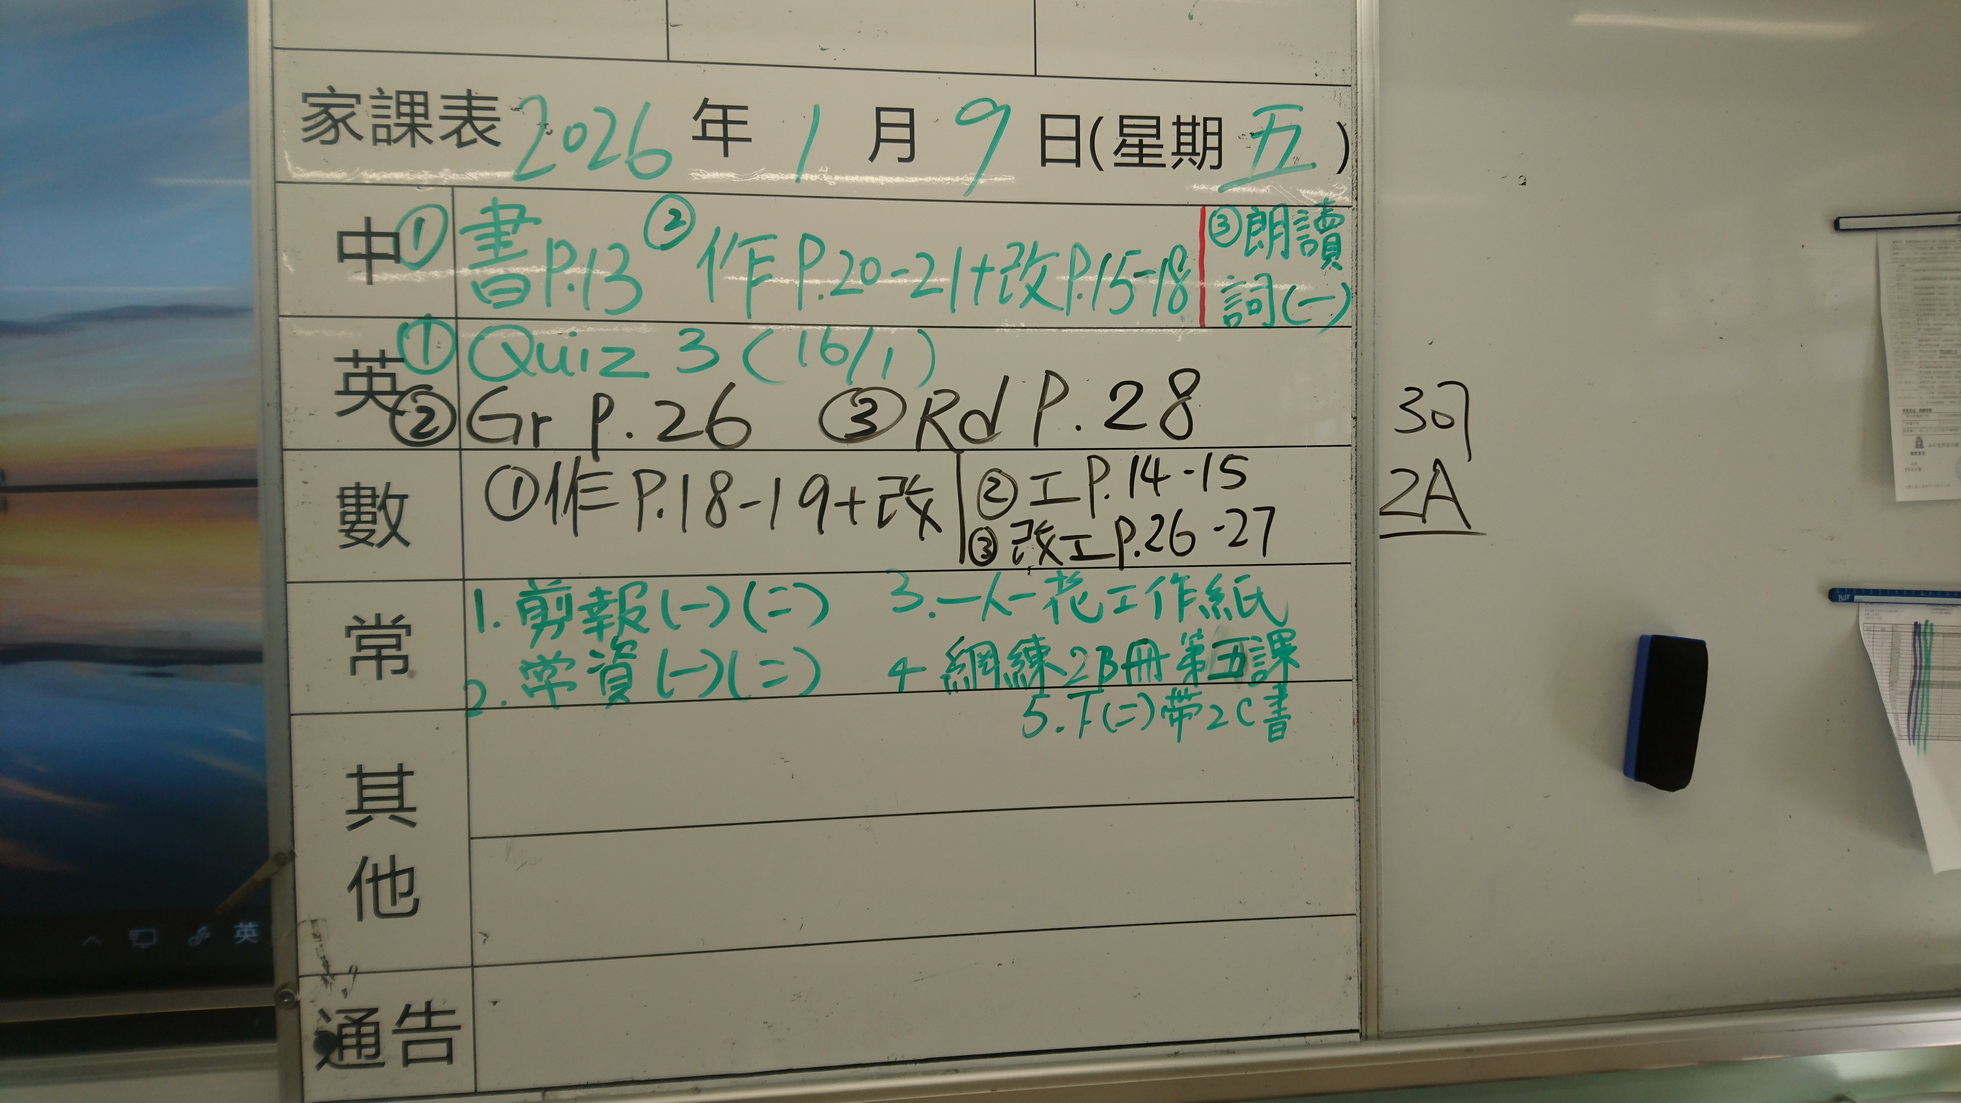 家課表 2026 年 1 月 9 日(星期 五 )
中 ① 書P.13 ② 作P.20-21+改P.15-18 ③朗讀
詞(一)
英 ① Quiz 3 (16/1)
② Gr P.26 ③ Rd P.28
數 ①作P.18-19+改 ② 工P.14-15
③ 改工P.26-27
常 1. 剪報(一)(二) 3. 一人一花工作紙
2. 常資(一)(二) 4 網練2B冊第五課
5. 下(二)帶2C書
其他
通告
307
2A
英